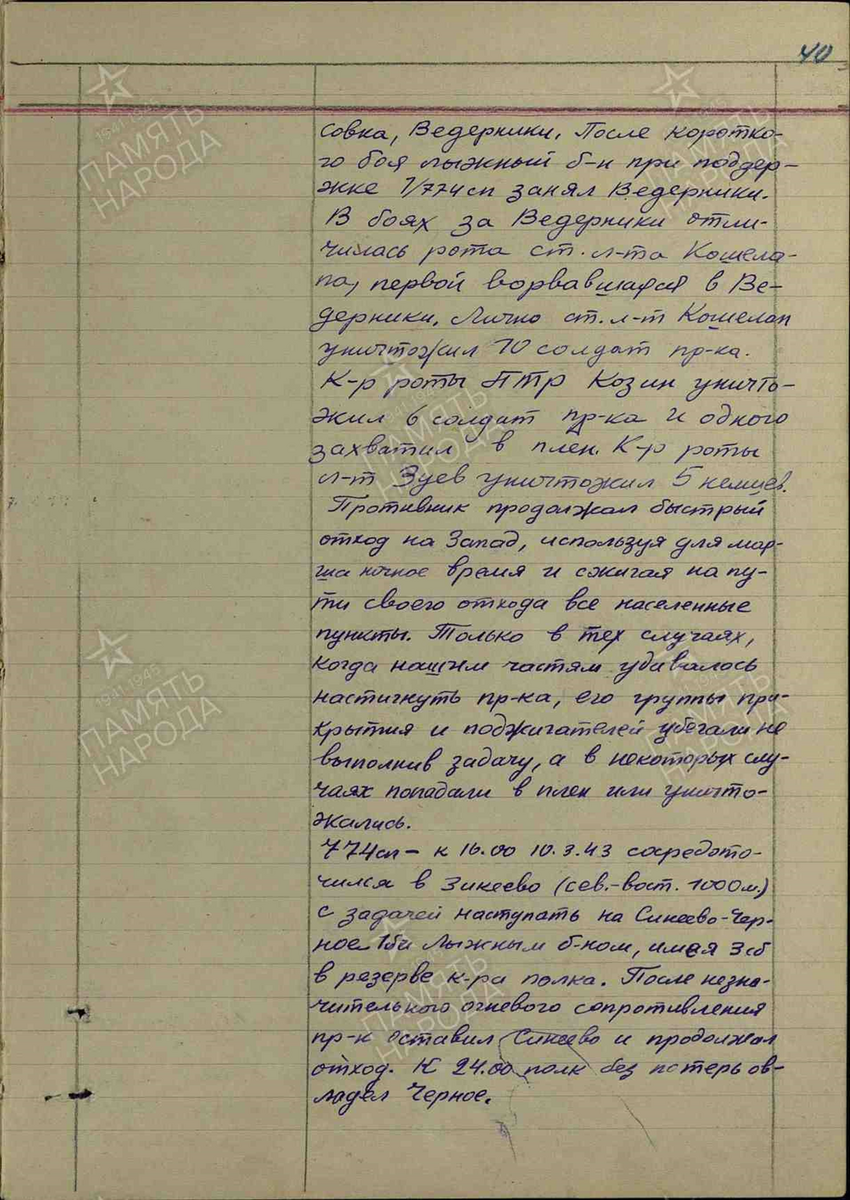 40
совка, Ведерники. После коротко-
го боя лыжный б-н при поддер-
жке 1/774сп занял Ведерники.
В боях за Ведерники отли-
чилась рота ст. л-та Кошела-
па, первой ворвавшаяся в Ве-
дерники. Лично ст. л-т Кошелап
уничтожил 10 солдат пр-ка.
К-р роты ПТР Козин уничто-
жил 6 солдат пр-ка и одного
захватил в плен. К-р роты
л-т Зуев уничтожил 5 немцев.
Противник продолжал быстрый
отход на Запад, используя для мар-
ша ночное время и сжигая на пу-
ти своего отхода все населенные
пункты. Только в тех случаях,
когда нашим частям удавалось
настигнуть пр-ка, его группы при-
крытия и поджигателей убегали не
выполнив задачу, а в некоторых слу-
чаях попадали в плен или уничто-
жались.
774сп – к 16.00 10.3.43 сосредото-
чился в Зикеево (сев.-вост. 1000м.)
с задачей наступать на Сикеево-Чер-
ное 1би Лыжным б-ном, имея 3сб
в резерве к-ра полка. После незна-
чительного огневого сопротивления
пр-к оставил Сикеево и продолжал
отход. К 24.00 полк без потерь ов-
ладел Черное.
1941-1945
ПАМЯТЬ
НАРОДА